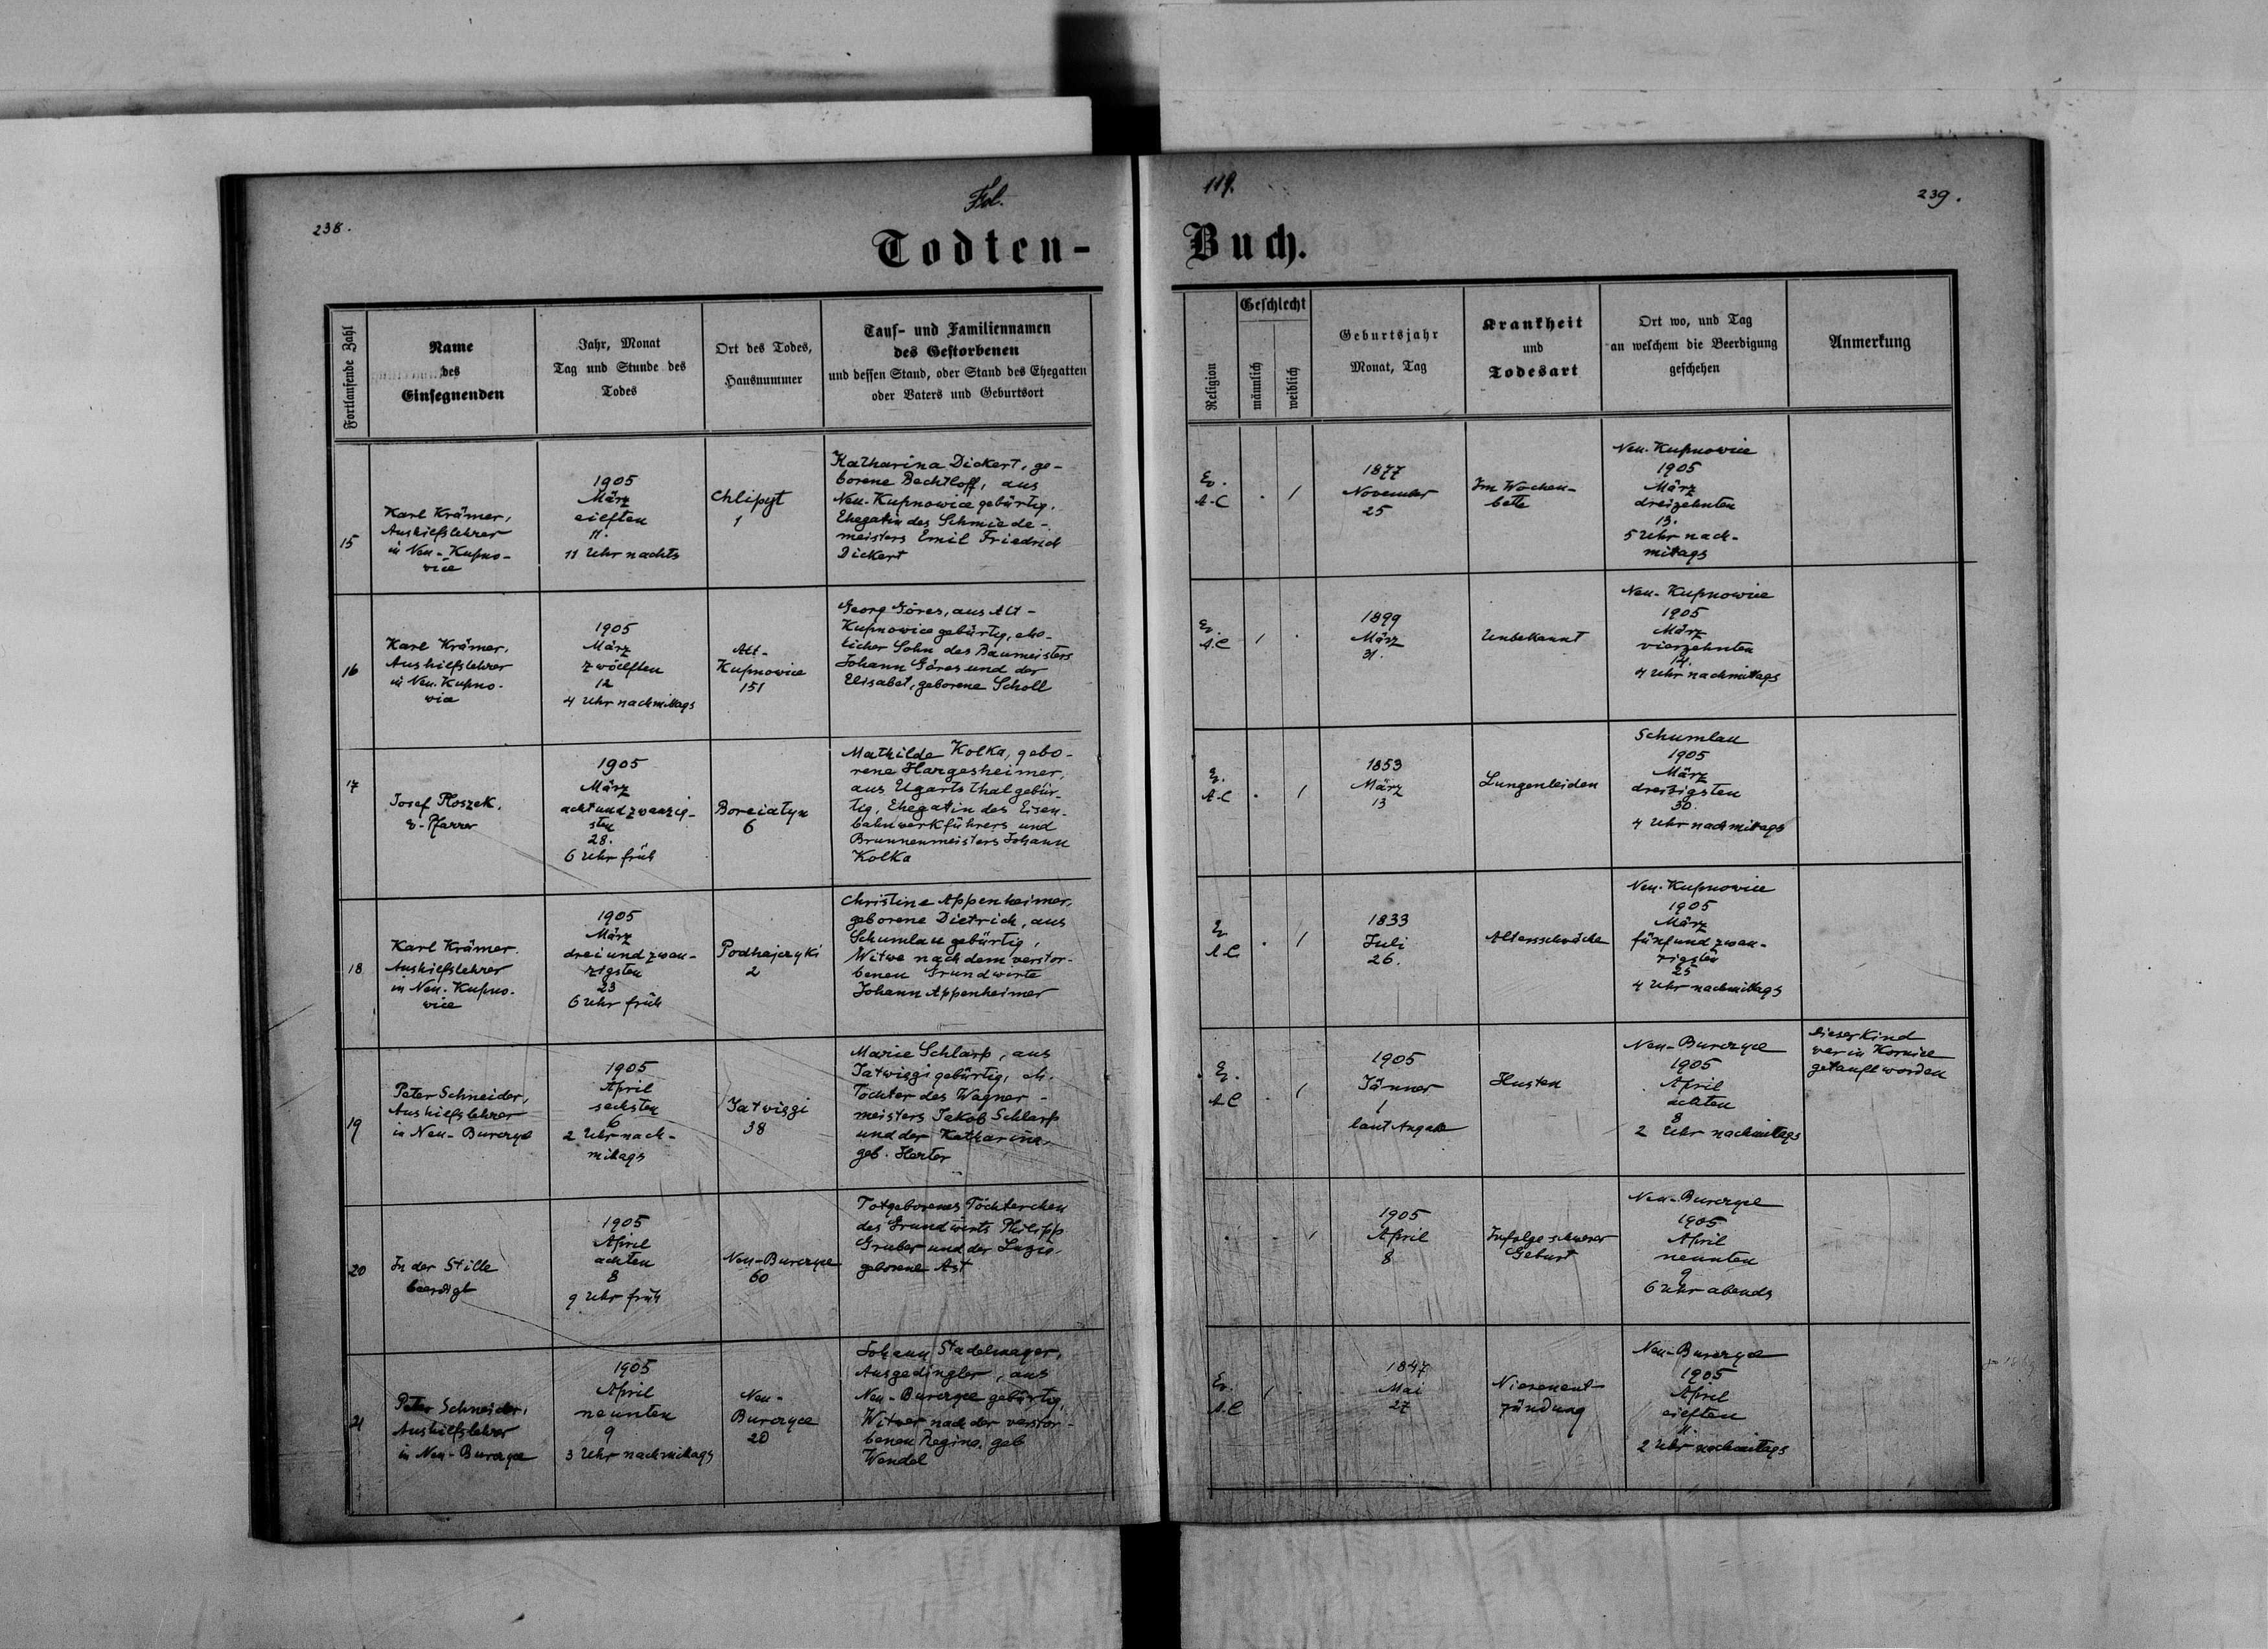 238.
Fol.
119.
239.
Todten-
Buch.
Fortlaufende Zahl
Name
des
Einsegnenden
Jahr, Monat
Tag und Stunde des
Todes
Ort des Todes,
Hausnummer
Tauf- und Familiennamen
des Gestorbenen
und dessen Stand, oder Stand des Ehegatten
oder Vaters und Geburtsort
Religion
Geschlecht
männlich
weiblich
Geburtsjahr
Monat, Tag
Krankheit
und
Todesart
Ort wo, und Tag
an welchem die Beerdigung
geschehen
Anmerkung
15
Karl Krämer,
Aushilfslehrer
in Neu-Kupno-
wice
1905
März
eilften
11.
11 Uhr nachts
Chlipyt
1
Katharina Dickert, ge-
borene Bechtloff, aus
Neu-Kupnowice gebürtig,
Ehegatin des Schmiede-
meisters Emil Friedrich
Dickert
Ev.
A-C
. 1
1877
November
25
Im Wochen-
bette
Neu-Kupnowice
1905
März
dreizehnten
13.
5 Uhr nach-
mitags
16
Karl Krämer,
Aushilfslehrer
in Neu-Kupno-
wice
1905
März
zwölften
12
4 Uhr nachmittags
Alt-
Kupnowice
151
Georg Göres, aus Alt-
Kupnowice gebürtig, ehe-
licher Sohn des Baumeisters
Johann Göres und der
Elisabet, geborene Scholl
Ev.
A.C
1 .
1899
März
31.
Unbekannt
Neu-Kupnowice
1905
März
vierzehnten
14.
4 Uhr nachmittags
17
Josef Ploszek,
ev. Pfarrer
1905
März
achtundzwanzig-
sten
28.
6 Uhr früh
Boreiatyn
6
Mathilde Kolka, gebo-
rene Hargesheimer,
aus Ugartsthal gebür-
tig, Ehegatin des Eisen-
bahnwerkführers und
Brunnenmeisters Johann
Kolka
Ev.
A-C
. 1
1853
März
13
Lungenleiden
Schumlau
1905
März
dreizigsten
30.
4 Uhr nachmitags
18
Karl Krämer.
Aushilfslehrer
in Neu-Kupno-
wice
1905
März
dreiundzwan-
zigsten
23
6 Uhr früh
Podhajczyki
2
Christine Appenheimer,
geborene Dietrich, aus
Schumlau gebürtig,
Witwe nach dem verstor-
benen Grundwirte
Johann Appenheimer
Ev
A C
. 1
1833
Juli
26.
Altersschwäche
Neu-Kupnowice
1905
März
fünfundzwan-
zigsten
25
4 Uhr nachmittags
19
Peter Schneider,
Aushilfslehrer
in Neu-Burczyce
1905
April
sechsten
6
2 Uhr nach-
mitags
Jatwiggi
38
Marie Schlarp, aus
Jatwiggi gebürtig, eh.
Tochter des Wagner-
meisters Jakob Schlarp
und der Katharina,
geb. Herter
Ev.
A C
. 1
1905
Jänner
1
laut Angabe
Husten
Neu-Burczyce
1905
April
achten
8
2 Uhr nachmittags
Dieses Kind
war in Kornice
getauft worden
20
In der Stille
beerdigt
1905
April
achten
8
9 Uhr früh
Neu-Burczyce
60
Totgeborenes Töchterchen
des Grundwirts Philipp
Gruber und der Luzie,
geborene Ast
. . 1
1905
April
8
Infolge schwerer
Geburt
Neu-Burczyce
1905
April
neunten
9
6 Uhr abends
21
Peter Schneider,
Aushilfslehrer
in Neu-Burczyce
1905
April
neunten
9
3 Uhr nachmitags
Neu-
Burczyce
20
Johann Stadelmayer,
Ausgedingler, aus
Neu-Burczyce gebürtig,
Witwer nach der verstor-
benen Regina, geb
Wendel
Ev.
A.C
1 .
1847
Mai
27
Nierenent-
zündung
Neu-Burczyce
1905
April
eilften
11.
2 Uhr nachmitags